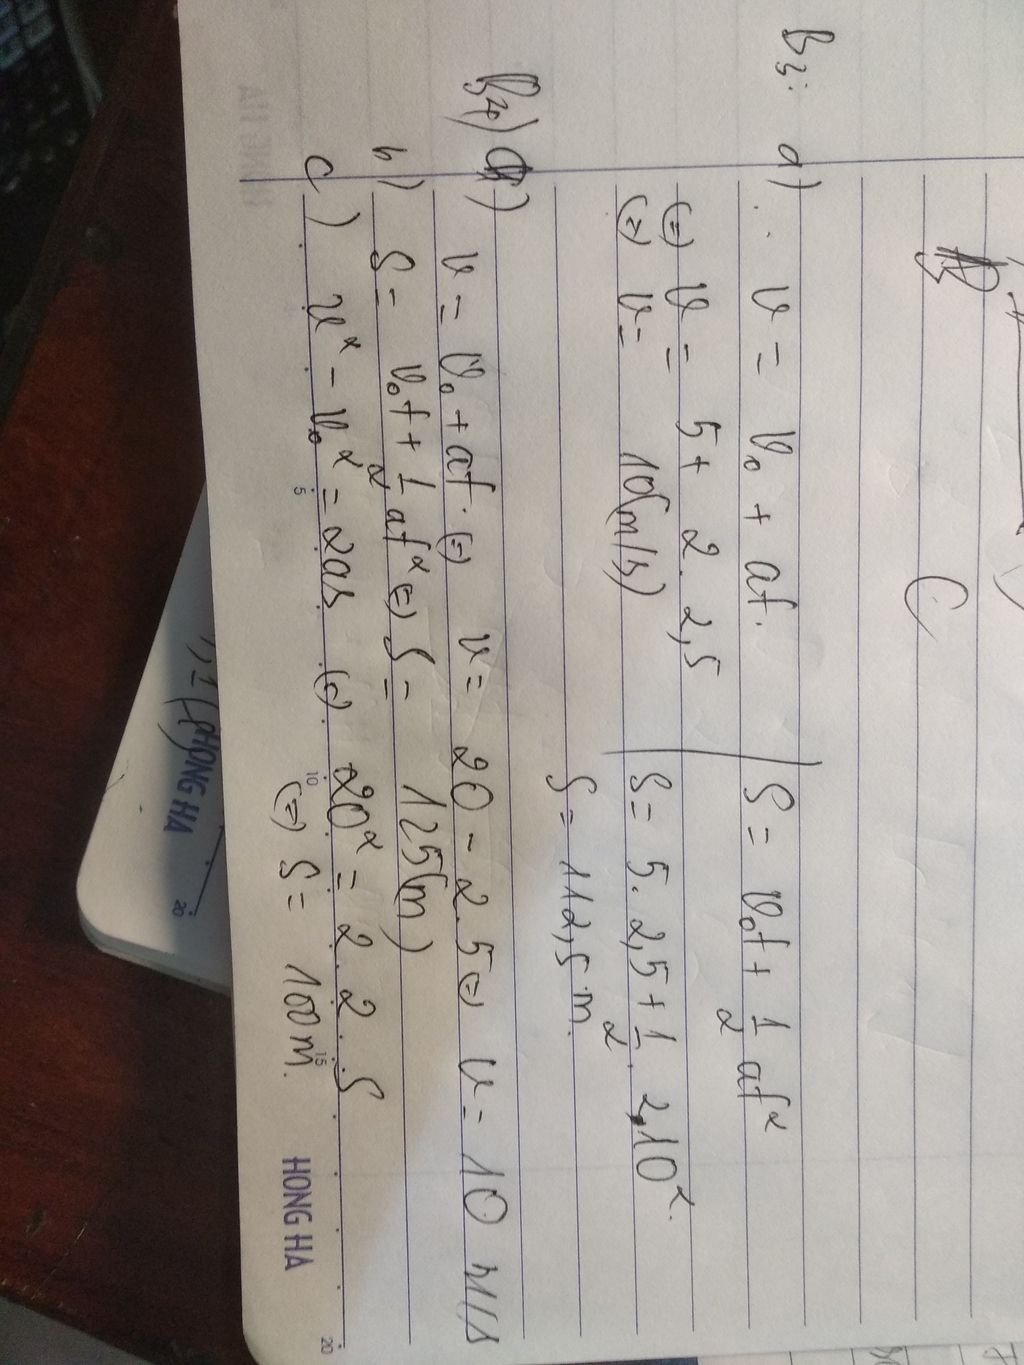 C
B3: a) v = v₀ + at. | S = v₀t + 1/2 at²
(=) v = 5 + 2 . 2,5 | S = 5 . 2,5 + 1/2 . 2,10².
(=) v = 10(m/s)
S = 112,5 m.
B4) a) v = v₀ + at. (=) v = 20 - 2 . 5 (=) v = 10 m/s
b) S = v₀t + 1/2 at² (=) S = 125(m)
c) v² - v₀² = 2as (=) 20² = 2 . 2 . S
(=) S = 100 m.
5 10 15 20
HONG HA
HONG HA
20